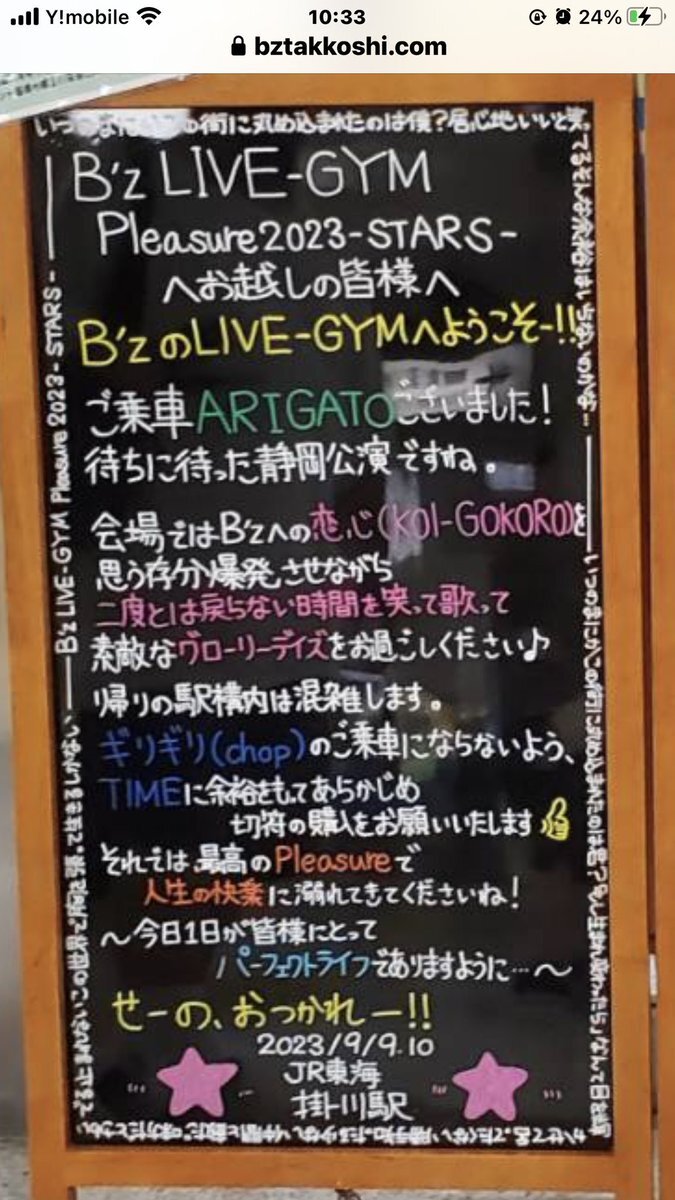 Y!mobile 10:33 24%
bztakkoshi.com
B'z LIVE-GYM
Pleasure2023-STARS-
へお越しの皆様へ
B'zのLIVE-GYMへようこそー!!
ご乗車ARIGATOございました!
待ちに待った静岡公演ですね。
会場ではB'zへの恋心(KOI-GOKORO)を
思う存分爆発させながら
二度とは戻らない時間を笑って歌って
素敵なヴローリーデイズをお過ごしください♪
帰りの駅構内は混雑します。
ギリギリ(chop)のご乗車にならないよう、
TIMEに余裕をもってあらかじめ
切符の購入をお願いいたします
それでは最高のPleasureで
人生の快楽に溺れてきてくださいね!
〜今日1日が皆様にとって
パーフェクトライフでありますように…〜
せーの、おつかれー!!
2023/9/9.10
JR東海
掛川駅
B'z LIVE-GYM Pleasure 2023-STARS-